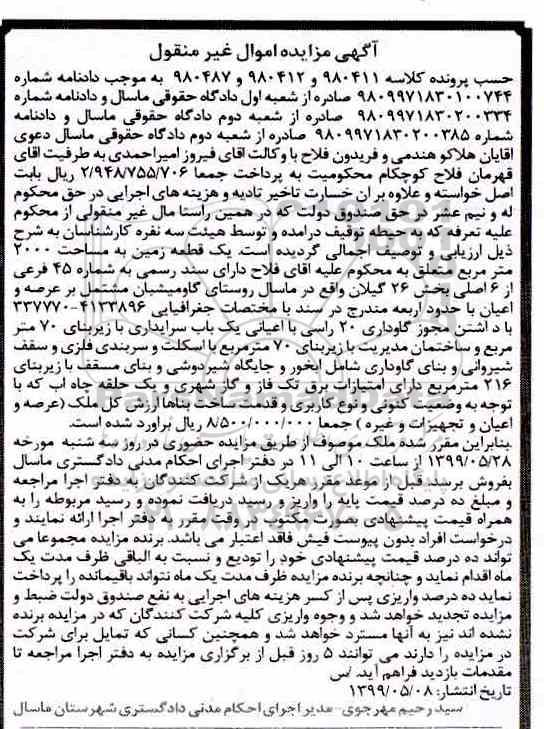 آگهی مزایده اموال غیر منقول
حسب پرونده کلاسه ۹۸۰۴۱۱ و ۹۸۰۴۱۲ و ۹۸۰۴۸۷ به موجب دادنامه شماره
۹۸۰۹۹۷۱۸۳۰۱۰۰۷۴۴ صادره از شعبه اول دادگاه حقوقی ماسال و دادنامه شماره
۹۸۰۹۹۷۱۸۳۰۲۰۰۳۳۴ صادره از شعبه دوم دادگاه حقوقی ماسال و دادنامه
شماره ۹۸۰۹۹۷۱۸۳۰۲۰۰۳۸۵ صادره از شعبه دوم دادگاه حقوقی ماسال دعوی
آقایان هلاکو هندمی و فریدون فلاح با وکالت آقای فیروز امیراحمدی به طرفیت آقای
قهرمان فلاح کوچکام محکومیت به پرداخت جمعا ۲/۹۴۸/۷۵۵/۷۰۶ ریال بابت
اصل خواسته و علاوه بر آن خسارت تاخیر تادیه و هزینه های اجرایی در حق محکوم
له و نیم عشر در حق صندوق دولت که در همین راستا مال غیر منقولی از محکوم
علیه تعرفه که به حیطه توقیف درآمده و توسط هیئت سه نفره کارشناسان به شرح
ذیل ارزیابی و توصیف اجمالی گردیده است. یک قطعه زمین به مساحت ۲۰۰۰
متر مربع متعلق به محکوم علیه آقای فلاح دارای سند رسمی به شماره ۴۵ فرعی
از ۶ اصلی بخش ۲۶ گیلان واقع در ماسال روستای گاومیشبان مشتمل بر عرصه و
اعیان با حدود اربعه مندرج در سند با مختصات جغرافیایی ۴۱۳۳۸۹۶-۳۳۷۷۷۰
با داشتن مجوز گاوداری ۲۰ راسی با اعیانی یک باب سرایداری با زیربنای ۷۰ متر
مربع و ساختمان مدیریت با زیربنای ۷۰ مترمربع با اسکلت و سربندی فلزی و سقف
شیروانی و بنای گاوداری شامل آبخور و جایگاه شیردوشی و بنای مسقف با زیربنای
۲۱۶ مترمربع دارای امتیازات برق تک فاز و گاز شهری و یک حلقه چاه آب که با
توجه به وضعیت کنونی و نوع کاربری و قدمت ساخت بناها ارزش کل ملک (عرصه و
اعیان و تجهیزات و غیره ) جمعا ۸/۵۰۰/۰۰۰/۰۰۰ ریال برآورد شده است.
.بنابراین مقرر شده ملک موصوف از طریق مزایده حضوری در روز سه شنبه مورخه
۱۳۹۹/۰۵/۲۸ از ساعت ۱۰ الی ۱۱ در دفتر اجرای احکام مدنی دادگستری ماسال
بفروش برسد. قبل از موعد مقرر هریک از شرکت کنندگان به دفتر اجرا مراجعه
و مبلغ ده درصد قیمت پایه را واریز و رسید دریافت نموده و رسید مربوطه را به
همراه قیمت پیشنهادی بصورت مکتوب در وقت مقرر به دفتر اجرا ارائه نمایند و
درخواست افراد بدون پیوست فیش فاقد اعتبار می باشد. برنده مزایده مجموعا می
تواند ده درصد قیمت پیشنهادی خود را تودیع و نسبت به الباقی ظرف مدت یک
ماه اقدام نماید و چنانچه برنده مزایده ظرف مدت یک ماه نتواند باقیمانده را پرداخت
نماید ده درصد واریزی پس از کسر هزینه های اجرایی به نفع صندوق دولت ضبط و
مزایده تجدید خواهد شد و وجوه واریزی کلیه شرکت کنندگان که در مزایده برنده
نشده اند نیز به آنها مسترد خواهد شد و همچنین کسانی که تمایل برای شرکت
در مزایده را دارند می توانند ۵ روز قبل از برگزاری مزایده به دفتر اجرا مراجعه تا
مقدمات بازدید فراهم آید. /س
تاریخ انتشار: ۱۳۹۹/۰۵/۰۸
سید رحیم مهرجوی-مدیر اجرای احکام مدنی دادگستری شهرستان ماسال